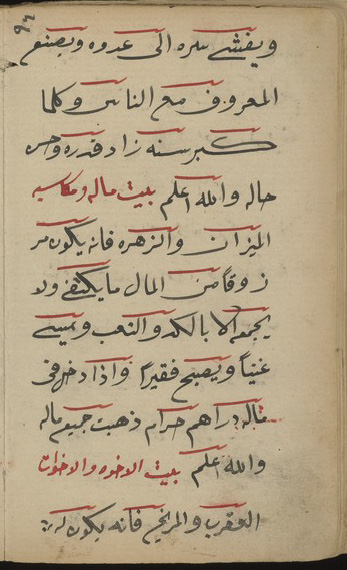 ٩٤
ويفشي سره الى عدوه ويصنع
المعروف مع الناس وكلما
كبر سنه زاد قدره وحسن
حاله والله اعلم بيت ماله ومكاسبه
الميزان والزهره فانه يكون مر
زوقا من المال ما يكتفي ولا
يجمعه الا بالكد والتعب ويمسي
غنيا ويصبح فقيرا واذا دخل في
ماله دراهم حرام ذهبت جميع ماله
والله اعلم بيت الاخوه والاخوات
العقرب والمريخ فانه يكون له